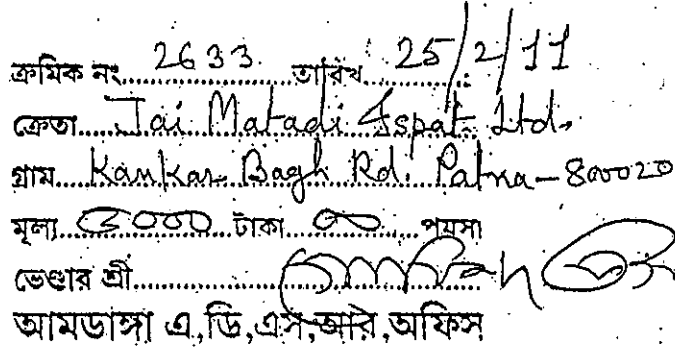 ক্রমিক নং 2633 তারিখ 25/2/11
ক্রেতা Jai Matadi Ispat Ltd.
গ্রাম Kankar Bagh Rd. Patna - 800020
মূল্য ৫০০০ টাকা ০০ পয়সা
ভেণ্ডার শ্রী
আমডাঙ্গা এ,ডি,এস,আর,অফিস